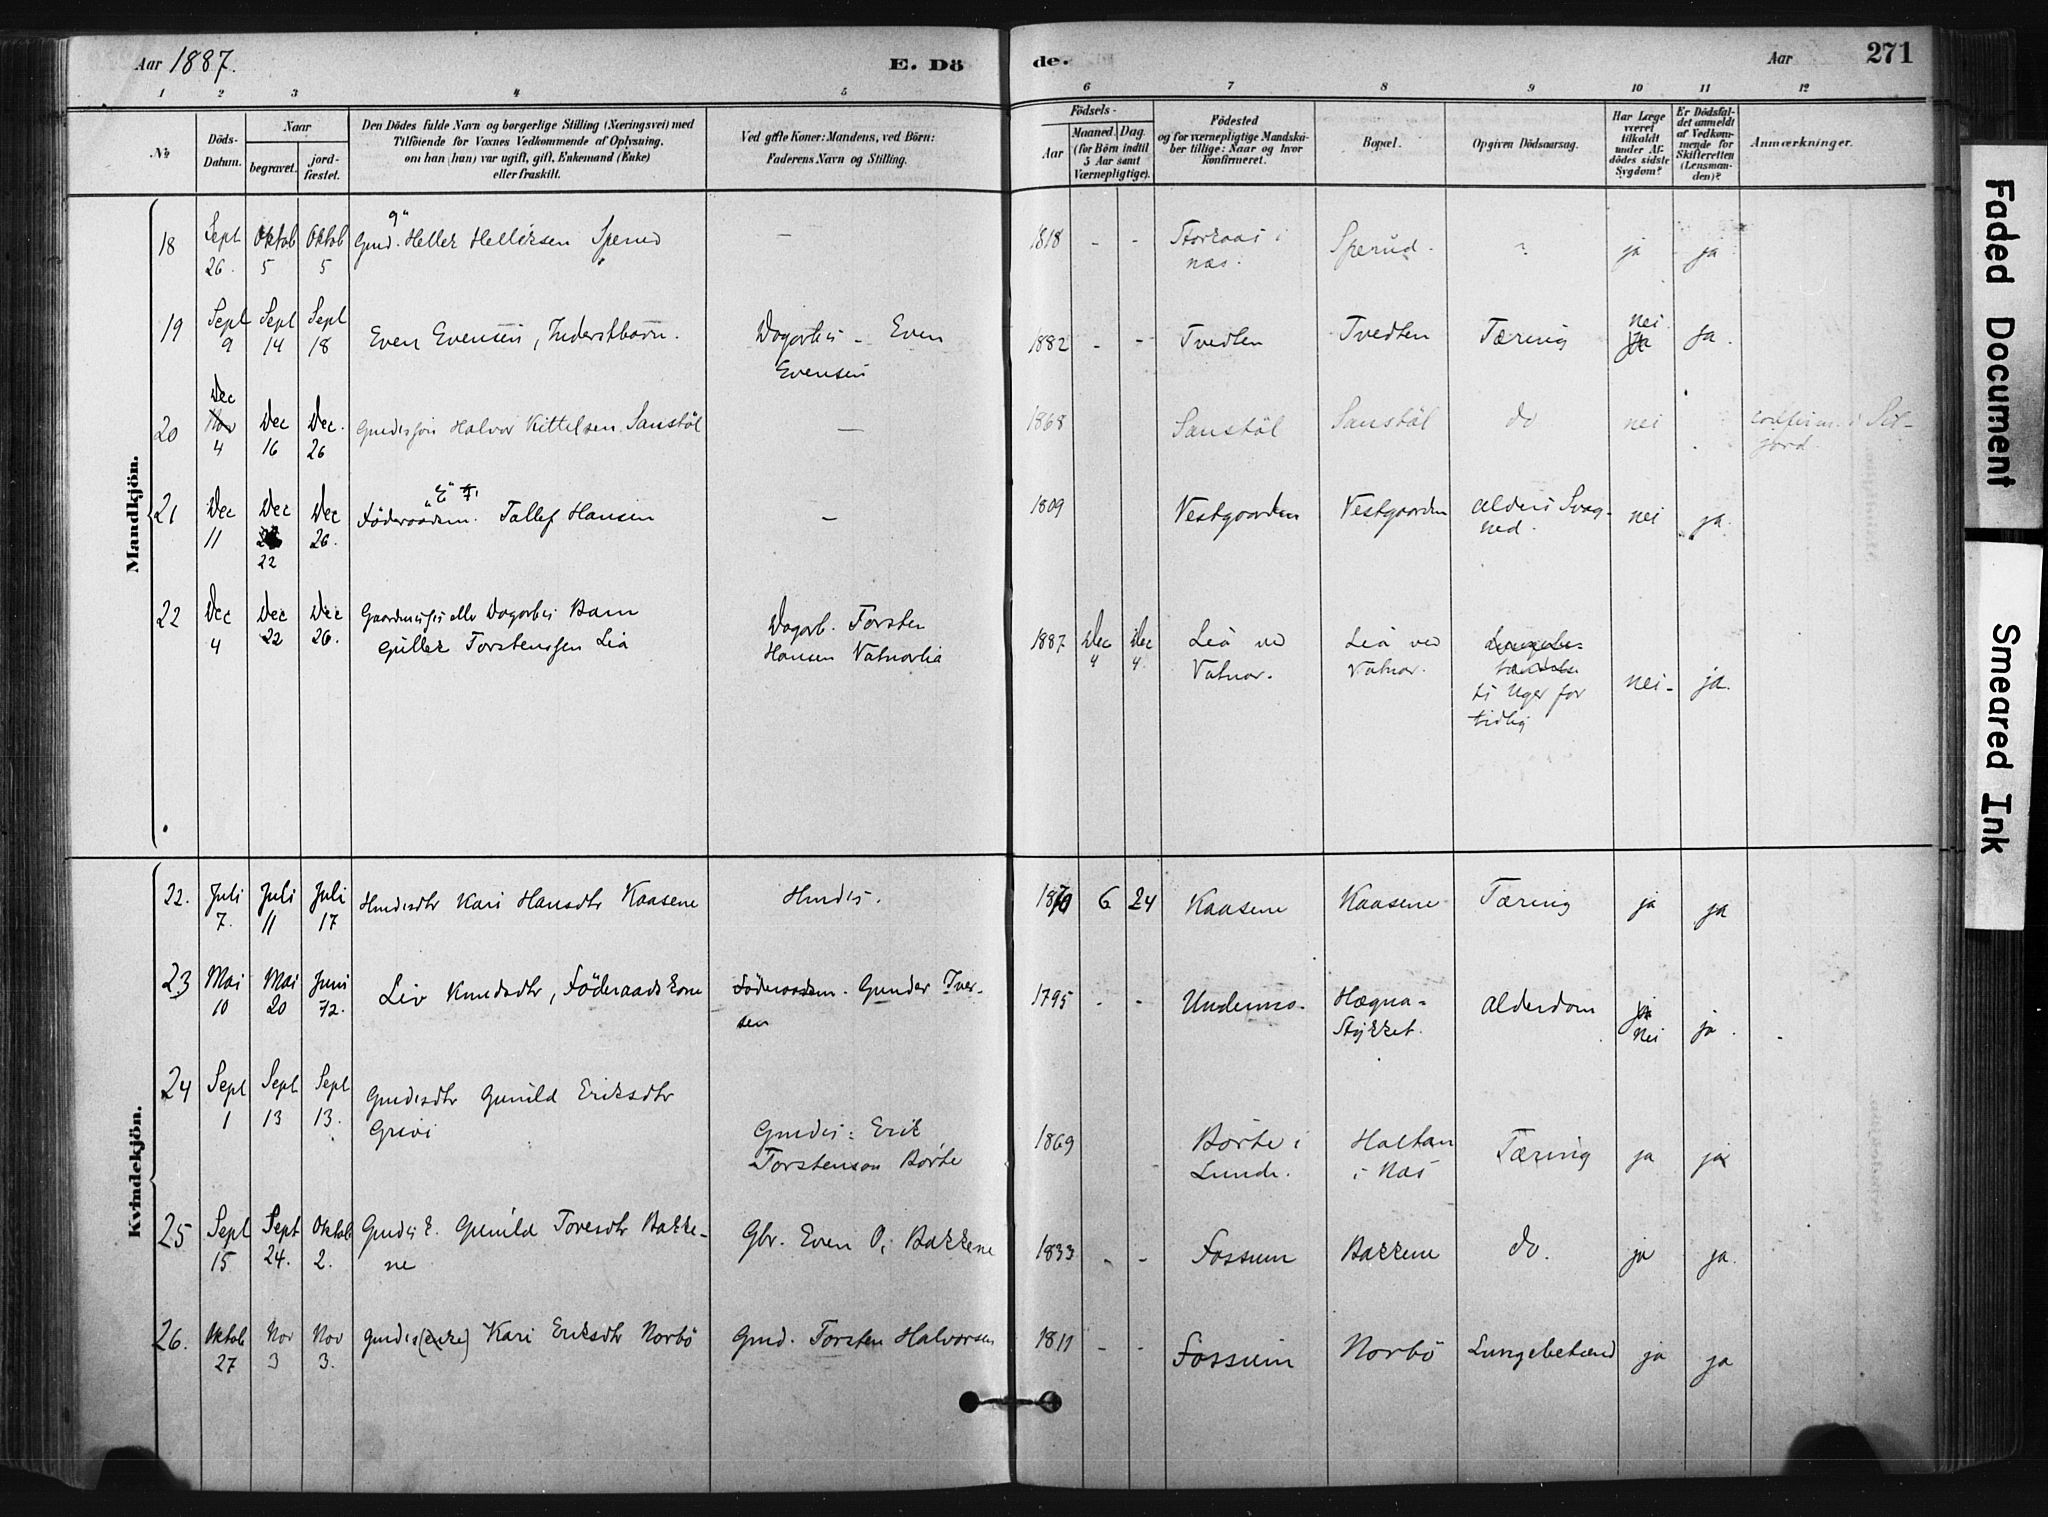 Aar 1887.
E. Dö
de.
Aar
271
1 2 3 4 5 6 7 8 9 10 11 12
No
Döds-
Datum.
Naar
begravet.
jord-
fæstet.
Den Dödes fulde Navn og borgerlige Stilling (Næringsvei) med
Tilföiende for Voxnes Vedkommende af Oplysning,
om han (hun) var ugift, gift, Enkemand (Enke)
eller fraskilt.
Ved gifte Koner: Mandens, ved Börn:
Faderens Navn og Stilling.
Födsels-
Aar
Maaned. Dag.
(for Börn indtil
5 Aar samt
Værnepligtige).
Födested
og for værnepligtige Mandska-
ber tillige: Naar og hvor
Konfirmeret.
Bopæl.
Opgiven Dödsaarsag.
Har Læge
været
tilkaldt
under Af-
dödes sidste
Sygdom?
Er Dödsfal-
det anmeldt
af Vedkom-
mende for
Skifteretten
(Lensman-
den)?
Anmærkninger.
Mandkjön.
18 Sept 26. Oktob 5 Oktob 5 Gmd. Hellek Helleksen Sperud – 1818 - - Storkaas i næs. Sperud. " ja ja
19 Sept 9 Sept 14 Sept 18 Even Evensen, Inderstbarn. Dagarbei – Even
Evensen 1882 - - Tvedten Tvedten Tæring nei ja ja.
20 Dec Nov 4 Dec 16 Dec. 26 Gmdessøn Halvor Kittelsen Sanstöl – 1868 Sanstöl Sanstöl do nei
confirm. i Sil-
jord.
21 Dec 11 Dec 22 Dec 26. Föderaadsm. Tallef Hansen – 1809 Vestgaarden Vestgaarden Alders Svag-
hed. nei ja.
22 Dec 4 Dec 22 Dec 26. Dagarbei Barn
Gullek Torstenssen Lia
Dagarb. Torsten
Hansen Vatnarlia
1887 Dec 4 Dec 4. Lia ved
Vatnar.
Lia ved
Vatnar.
ti Uger for
tidlig
nei- ja.
Kvindekjön.
22. Juli 7. Juli 11 Juli 17 Kari Hansdtr Kaasene 6 24 Kaasene Kaasene Tæring ja ja
23 Mai 10 Mai 20 Juni 12. Liv Knudsdtr, Föderaadskone Föderaadsm. Gunder Iver-
sen 1795 - - Undernes. Hægna-
Stykket. Alderdom ja nei ja.
24 Sept 1 Sept 13 Sept 13. Gmdesdtr Gunild Eriksdtr
Grivi
Gmdes: Erik
Torstenson Börte
1869 Börte i
Lunde. Haltan
i Næs Tæring ja ja
25 Sept 15 Sept 24. Oktob 2. Gmdsk. Gunild Toresdtr Bakke-
ne Gbr. Even O. Bakkene 1833 - - Fossum Bakkene do. ja ja.
26. Oktob 27 Nov 3 Nov 3. Gmdes(enke) Kari Eriksdtr Norbö Gmd. Torsten Halvorsen 1811 - - Fossum Norbö Lungebetænd ja ja
Faded Document
Smeared Ink